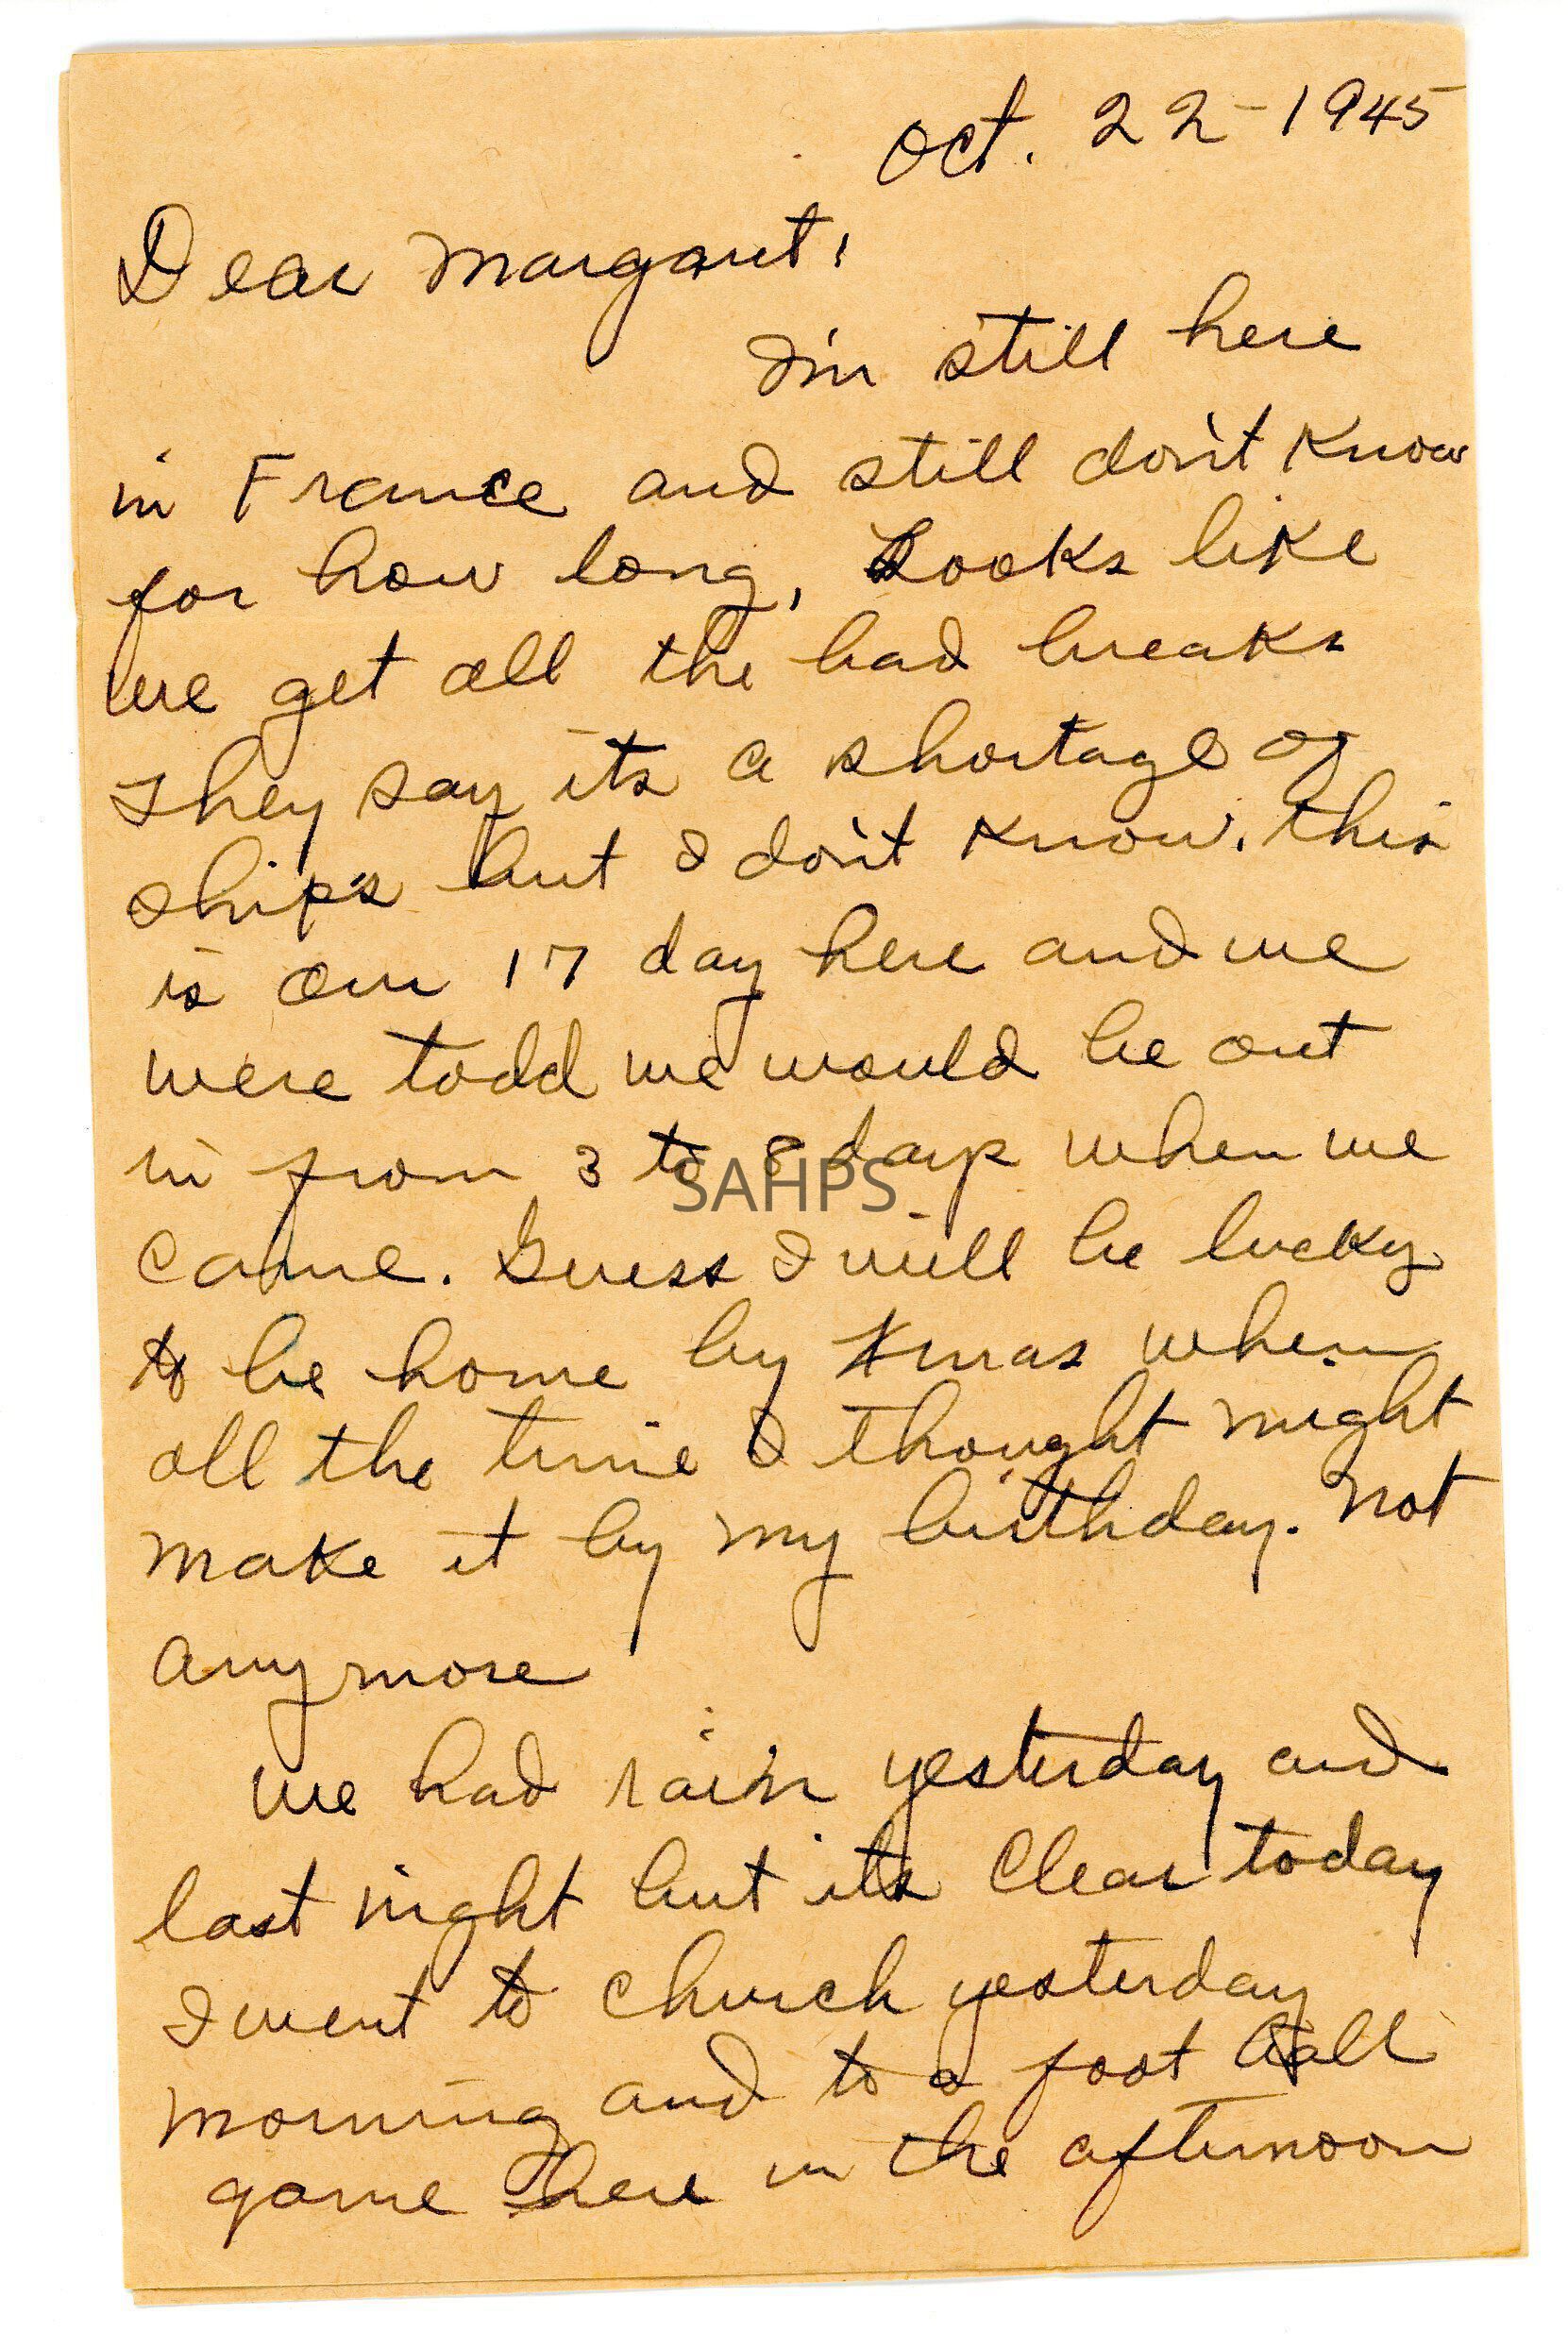 Oct. 22-1945
Dear Margaret,
I'm still here
in France and still don't know
for how long, Looks like
we get all the bad breaks
They say its a shortage of
ships but I don't know. this
is our 17 day here and we
were todd we would be out
in from 3 to 8 days when we
SAHPS
came. Guess I will be lucky
to be home by Xmas when
all the time I thought might
make it by my birthday. Not
anymore
We had rain yesterday and
last night but its clear today
I went to church yesterday
morning and to a foot ball
game here in the afternoon